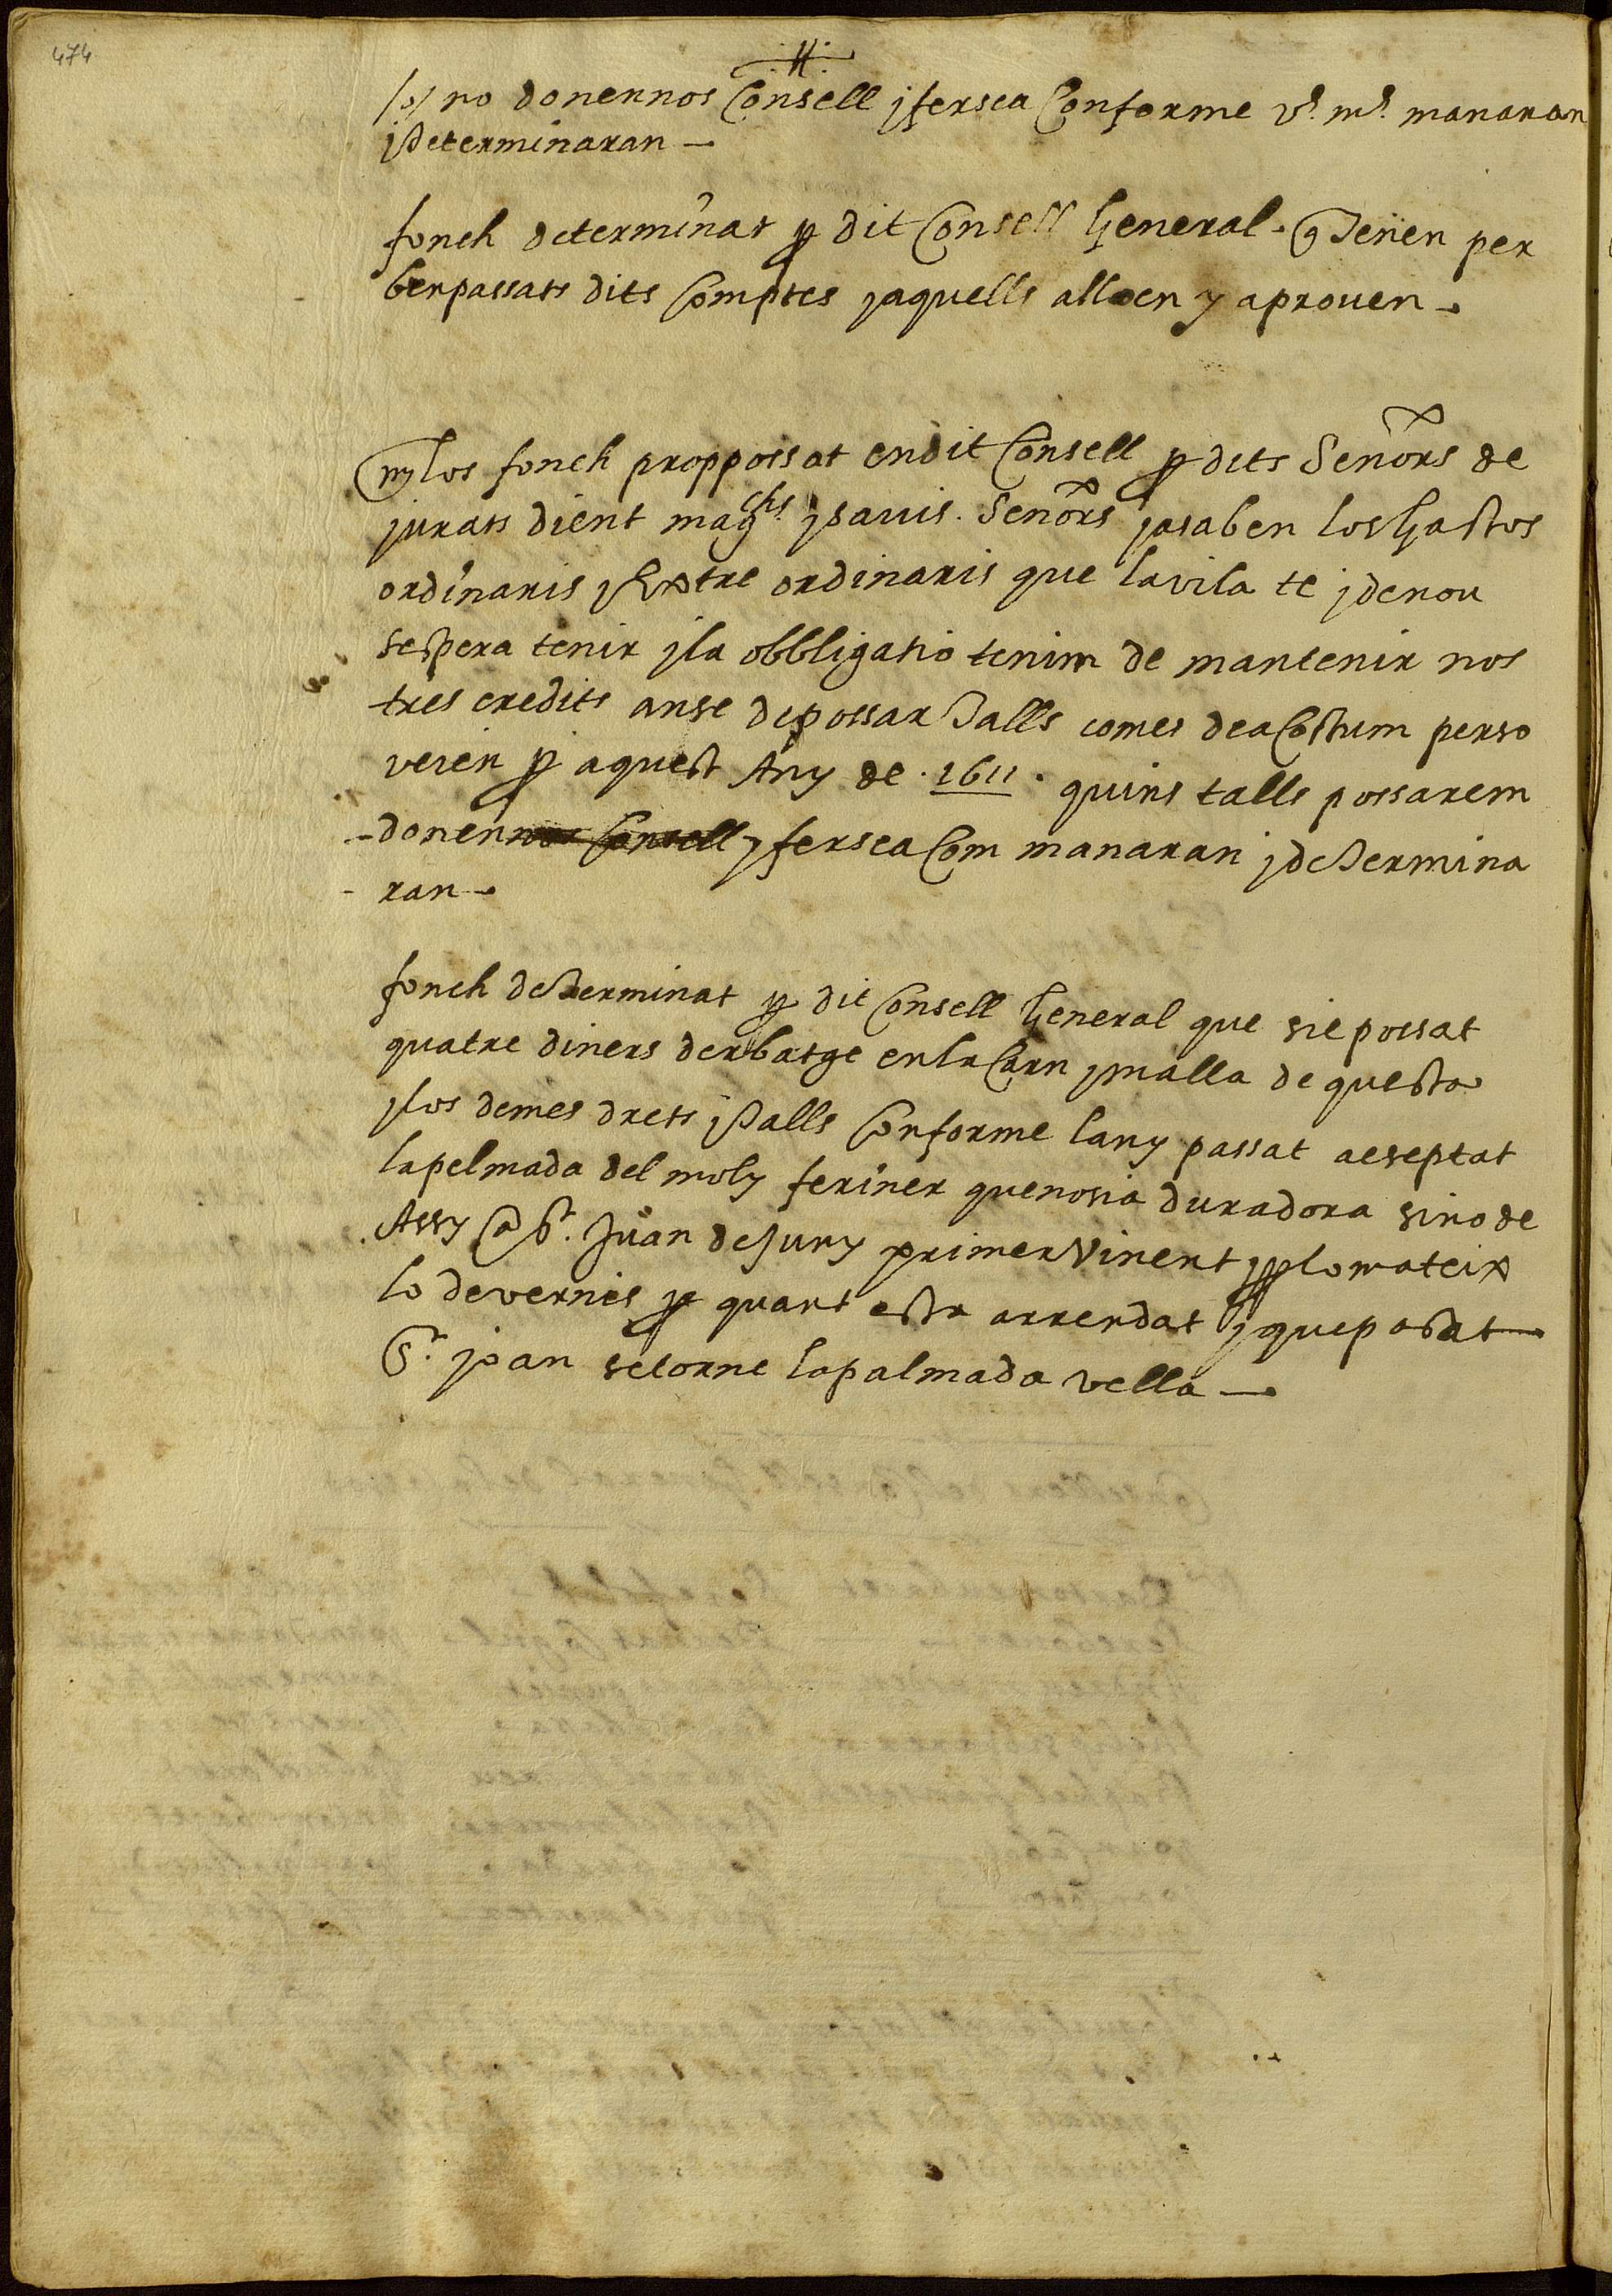 474
/o/ no donennos Consell y fersea Conforme v.s m.s manaran
y determinaran
fonch determinat p dit Consell General q tenen per
benpassats dits Comptes y aquells alloen y aproven
mes los fonch proppossat en dit Consell p dits Senors de
jurats dient mag.chs y savis Senors ja saben los gastos
ordinaris y Extre ordinaris que la vila te y de nou
sespera tenir y la obbligatio tenim de mantenir nos
tres credits anse de possar talls comes de a Costum perso
veien p aquest Any de .1611. quins talls possarem
donennos Consell y fersea Com manaran y determina
ran
fonch determinat p dit Consell General que sie possat
quatre diners derbatge en la Carn y malla de questa
y los demes drets y talls Conforme lany passat aseptat
la pelmada del moly feriner que no sia duradora sino de
Assy a S.t Juan de Juny primer vinent y p lo mateix
lo de vernis p quant esta arrendat y que passat
S.t joan se torne la palmada vella